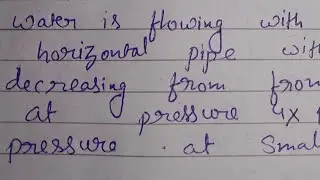 water is flowing with
horizontal pipe wit
decreasing from from
at pressure 4x
pressure . at Smal